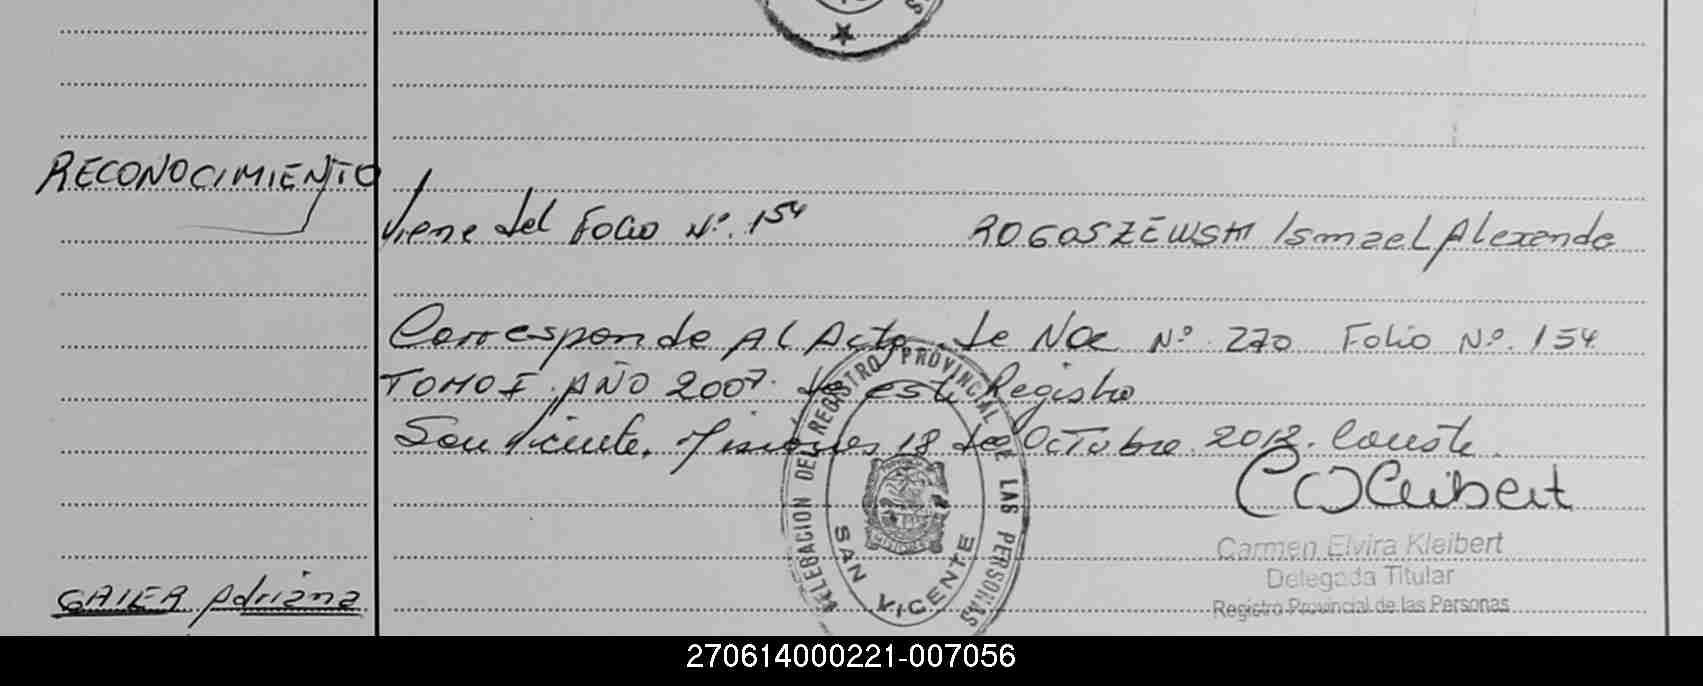 RECONOCIMIENTO
Viene del Folio Nº. 154 ROGOSZEWSKI Ismael Alexande
Corresponde Al Acta de Nac Nº 270 Folio Nº. 154
TOMO I. AÑO 2007. de este Registro
San Vicente, Misiones 18 de Octubre 2012. Conste.
DELEGACION DEL REGISTRO PROVINCIAL DE LAS PERSONAS
SAN VICENTE
MISIONES
Kleibert
Carmen Elvira Kleibert
Delegada Titular
Registro Provincial de las Personas
GAIER Adriana
270614000221-007056